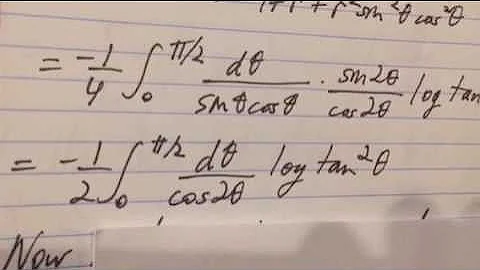 1+r+r²sin²θcos²θ
= -1/4 ∫₀^π/2 dθ/sinθcosθ · sin2θ/cos2θ log tan
= -1/2 ∫₀^π/2 dθ/cos2θ log tan²θ
Now